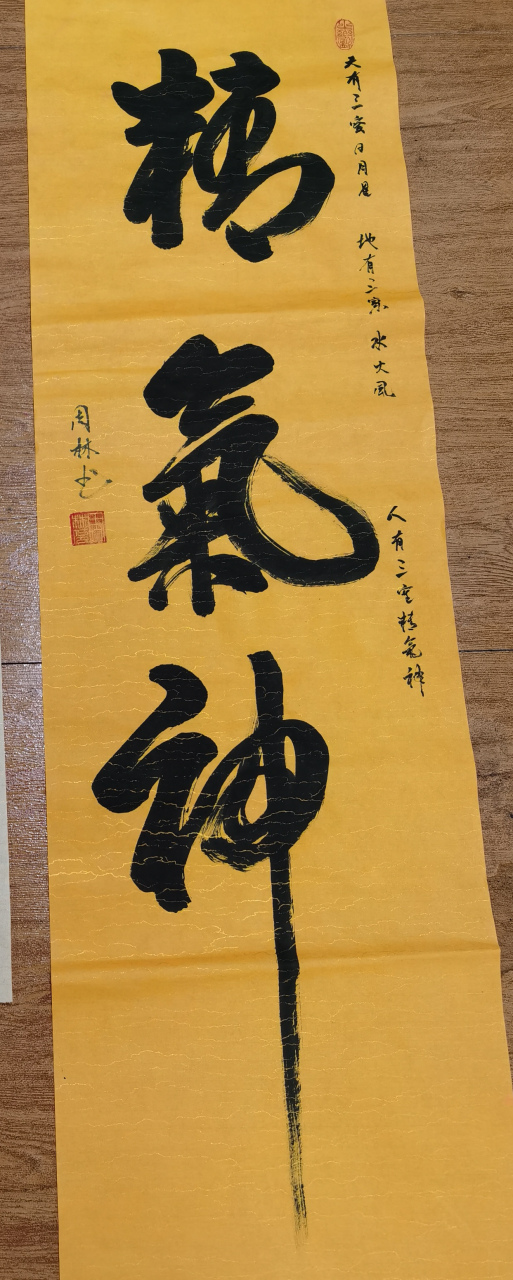 天有三宝日月星
地有三宝水火风
人有三宝精氣神
精氣神
周林书